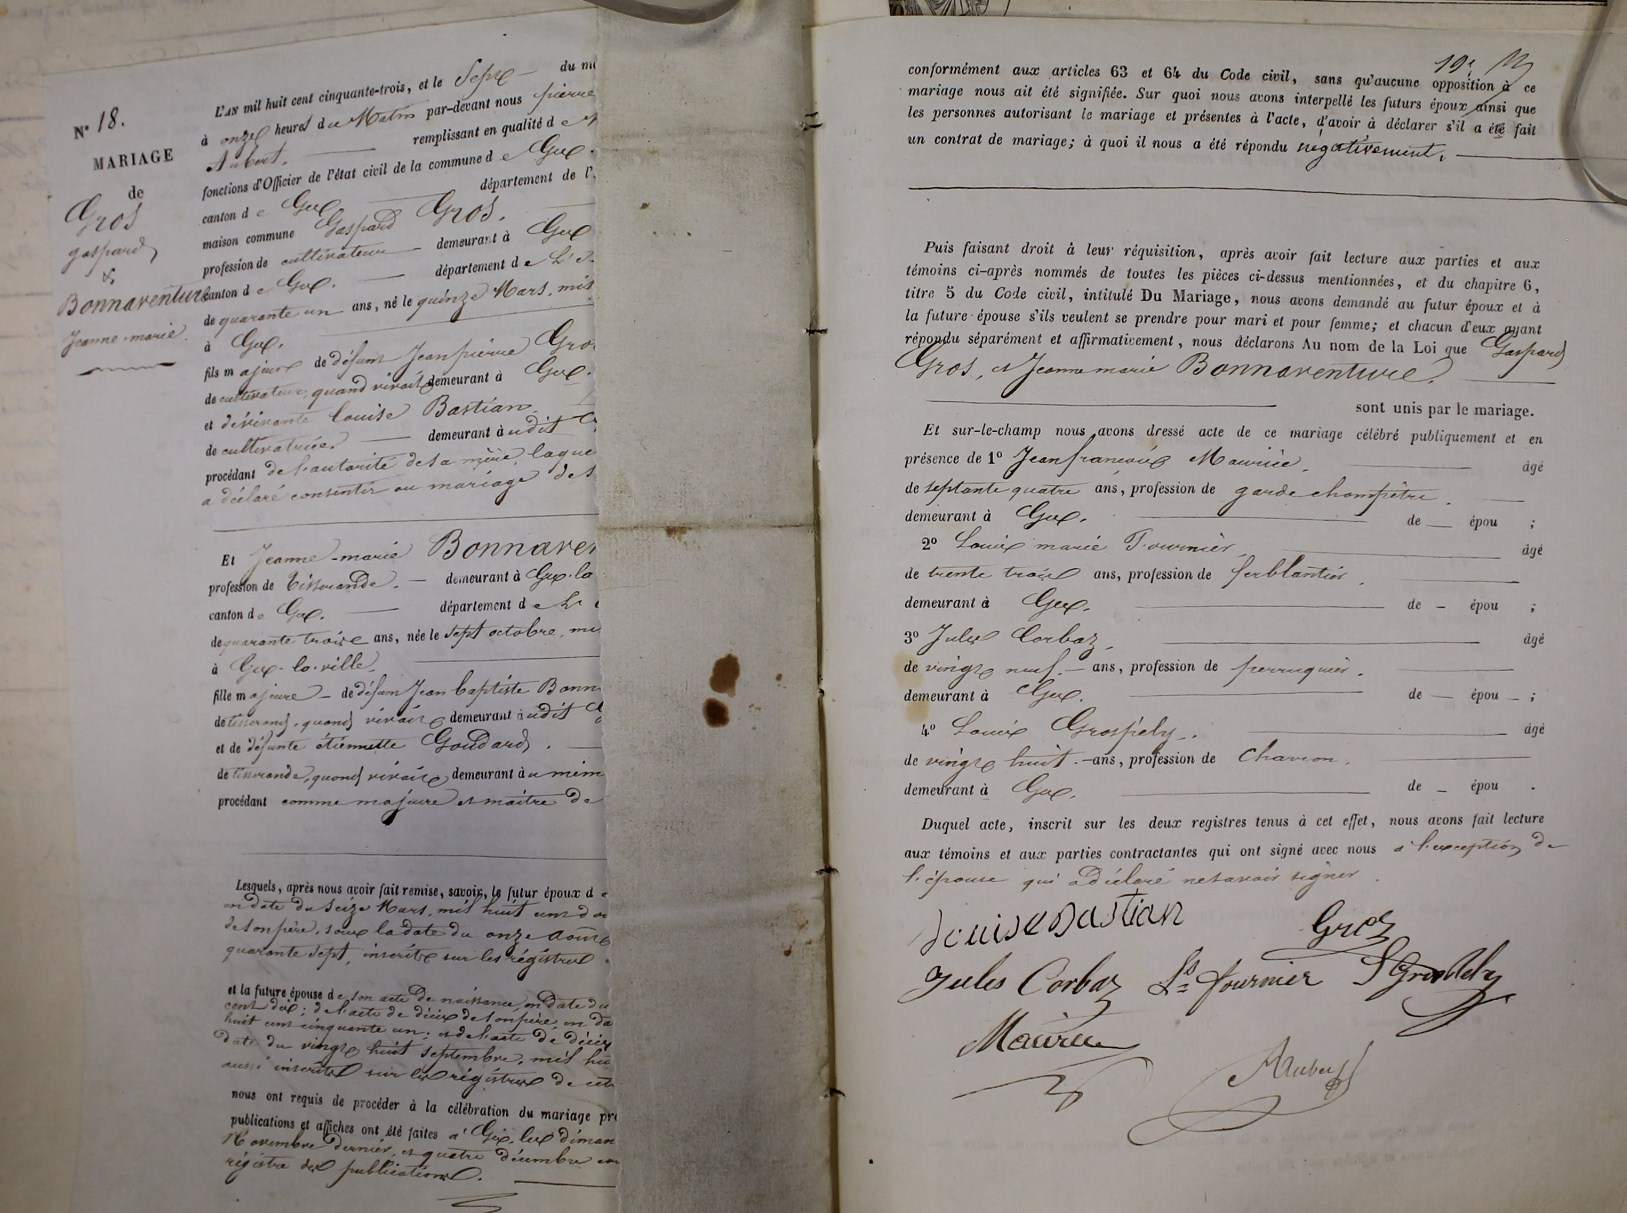 N° 18.
MARIAGE
de
Gros
gaspard
&
Bonnaventure
Jeanne-marie.
L'AN mil huit cent cinquante-trois, et le Sept du
à onze heures du Matin par-devant nous pierre
Aubert. remplissant en qualité de
fonctions d'Officier de l'état civil de la commune de Gex.
canton de Gex département de l'
maison commune Gaspard Gros.
profession de cultivateur demeurant à Gex
canton de Gex. département de L'
de quarante un ans, né le quinze Mars, mil
à Gex.
fils majeur de défunt Jean pierre Gro
de cultivateur, quand vivait demeurant à Gex.
et de vivante Louise Bastian
de cultivatrice. demeurant à udit
procédant de l'autorité de sa mère, laque
a déclaré consentir au mariage de s
Et Jeanne-marie Bonnaven
profession de tisserande. demeurant à Gex-la
canton de Gex. département de L'
de quarante trois ans, née le sept octobre, mi
à Gex-la-ville.
fille majeure de défunt Jean baptiste Bonn
de tisserand, quand vivait demeurant audit
et de défunte étiennette Goudard.
de tisserande, quand vivait demeurant au mêm
procédant comme majeure et maitre de
Lesquels, après nous avoir fait remise, savoir, le futur époux d
en date du Seize Mars, mil huit cent do
de son père, sous la date du onze Août
quarante sept, inscrits sur les régistres
et la future épouse de son acte de naissance, en date du
cent dix; de l'acte de décès de son père, en da
huit cent cinquante un; et de l'acte de décès
date du vingt huit septembre, mil hu
aussi inscrits sur les régistres de cet
nous ont requis de procéder à la célébration du mariage pro
publications et affiches ont été faites à Gex les diman
Novembre dernier, et quatre décembre
régistre des publications.
19e
conformément aux articles 63 et 64 du Code civil, sans qu'aucune opposition à ce
mariage nous ait été signifiée. Sur quoi nous avons interpellé les futurs époux ainsi que
les personnes autorisant le mariage et présentes à l'acte, d'avoir à déclarer s'il a été fait
un contrat de mariage; à quoi il nous a été répondu négativement.
Puis faisant droit à leur réquisition, après avoir fait lecture aux parties et aux
témoins ci-après nommés de toutes les pièces ci-dessus mentionnées, et du chapitre 6,
titre 5 du Code civil, intitulé Du Mariage, nous avons demandé au futur époux et à
la future épouse s'ils veulent se prendre pour mari et pour femme; et chacun d'eux ayant
répondu séparément et affirmativement, nous déclarons Au nom de la Loi que Gaspard
Gros, et Jeanne marie Bonnaventure.
sont unis par le mariage.
Et sur-le-champ nous avons dressé acte de ce mariage célébré publiquement et en
présence de 1° Jean françois Maurice. âgé
de septante quatre ans, profession de garde champêtre.
demeurant à Gex. de — épou ;
2° Louis marie Fournier âgé
de trente trois ans, profession de ferblantier.
demeurant à Gex. de — épou ;
3° Jules Corbaz. âgé
de vingt neuf ans, profession de perruquier.
demeurant à Gex. de — épou — ;
4° Louis Grospély. âgé
de vingt huit ans, profession de charron.
demeurant à Gex. de — épou .
Duquel acte, inscrit sur les deux registres tenus à cet effet, nous avons fait lecture
aux témoins et aux parties contractantes qui ont signé avec nous à l'exception de
l'épouse qui a déclaré ne savoir signer.
Louise Bastian
Gros
Jules Corbaz Ls fournier
Maurice
Aubert